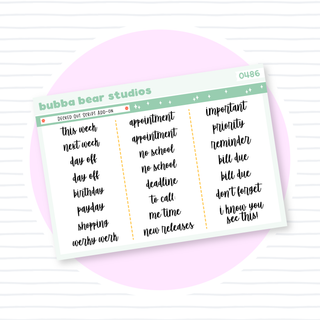 bubba bear studios
0486
DECKED OUT SCRIPT ADD-ON
this week
next week
day off
day off
birthday
payday
shopping
werky werk
appointment
appointment
no school
no school
deadline
to call
me time
new releases
important
priority
reminder
bill due
bill due
don't forget
i know you
see this!